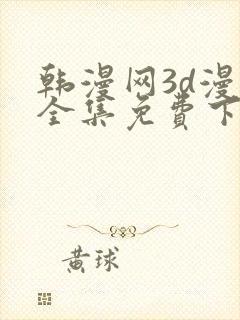 韩漫网3d漫
全集免費下
黄球